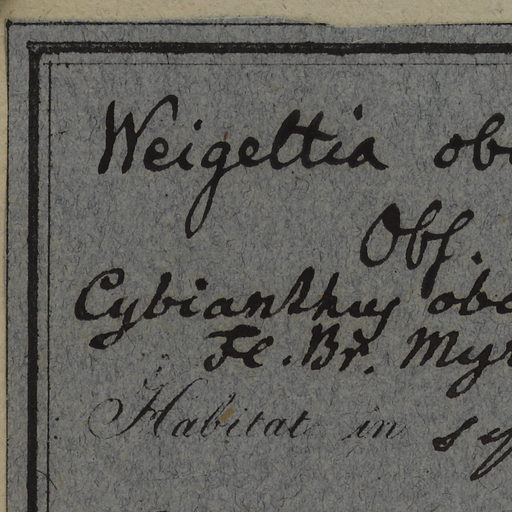 Weigeltia ob
Obs.
Cybianthus ob
Fl. Br. Myr
Habitat in sy